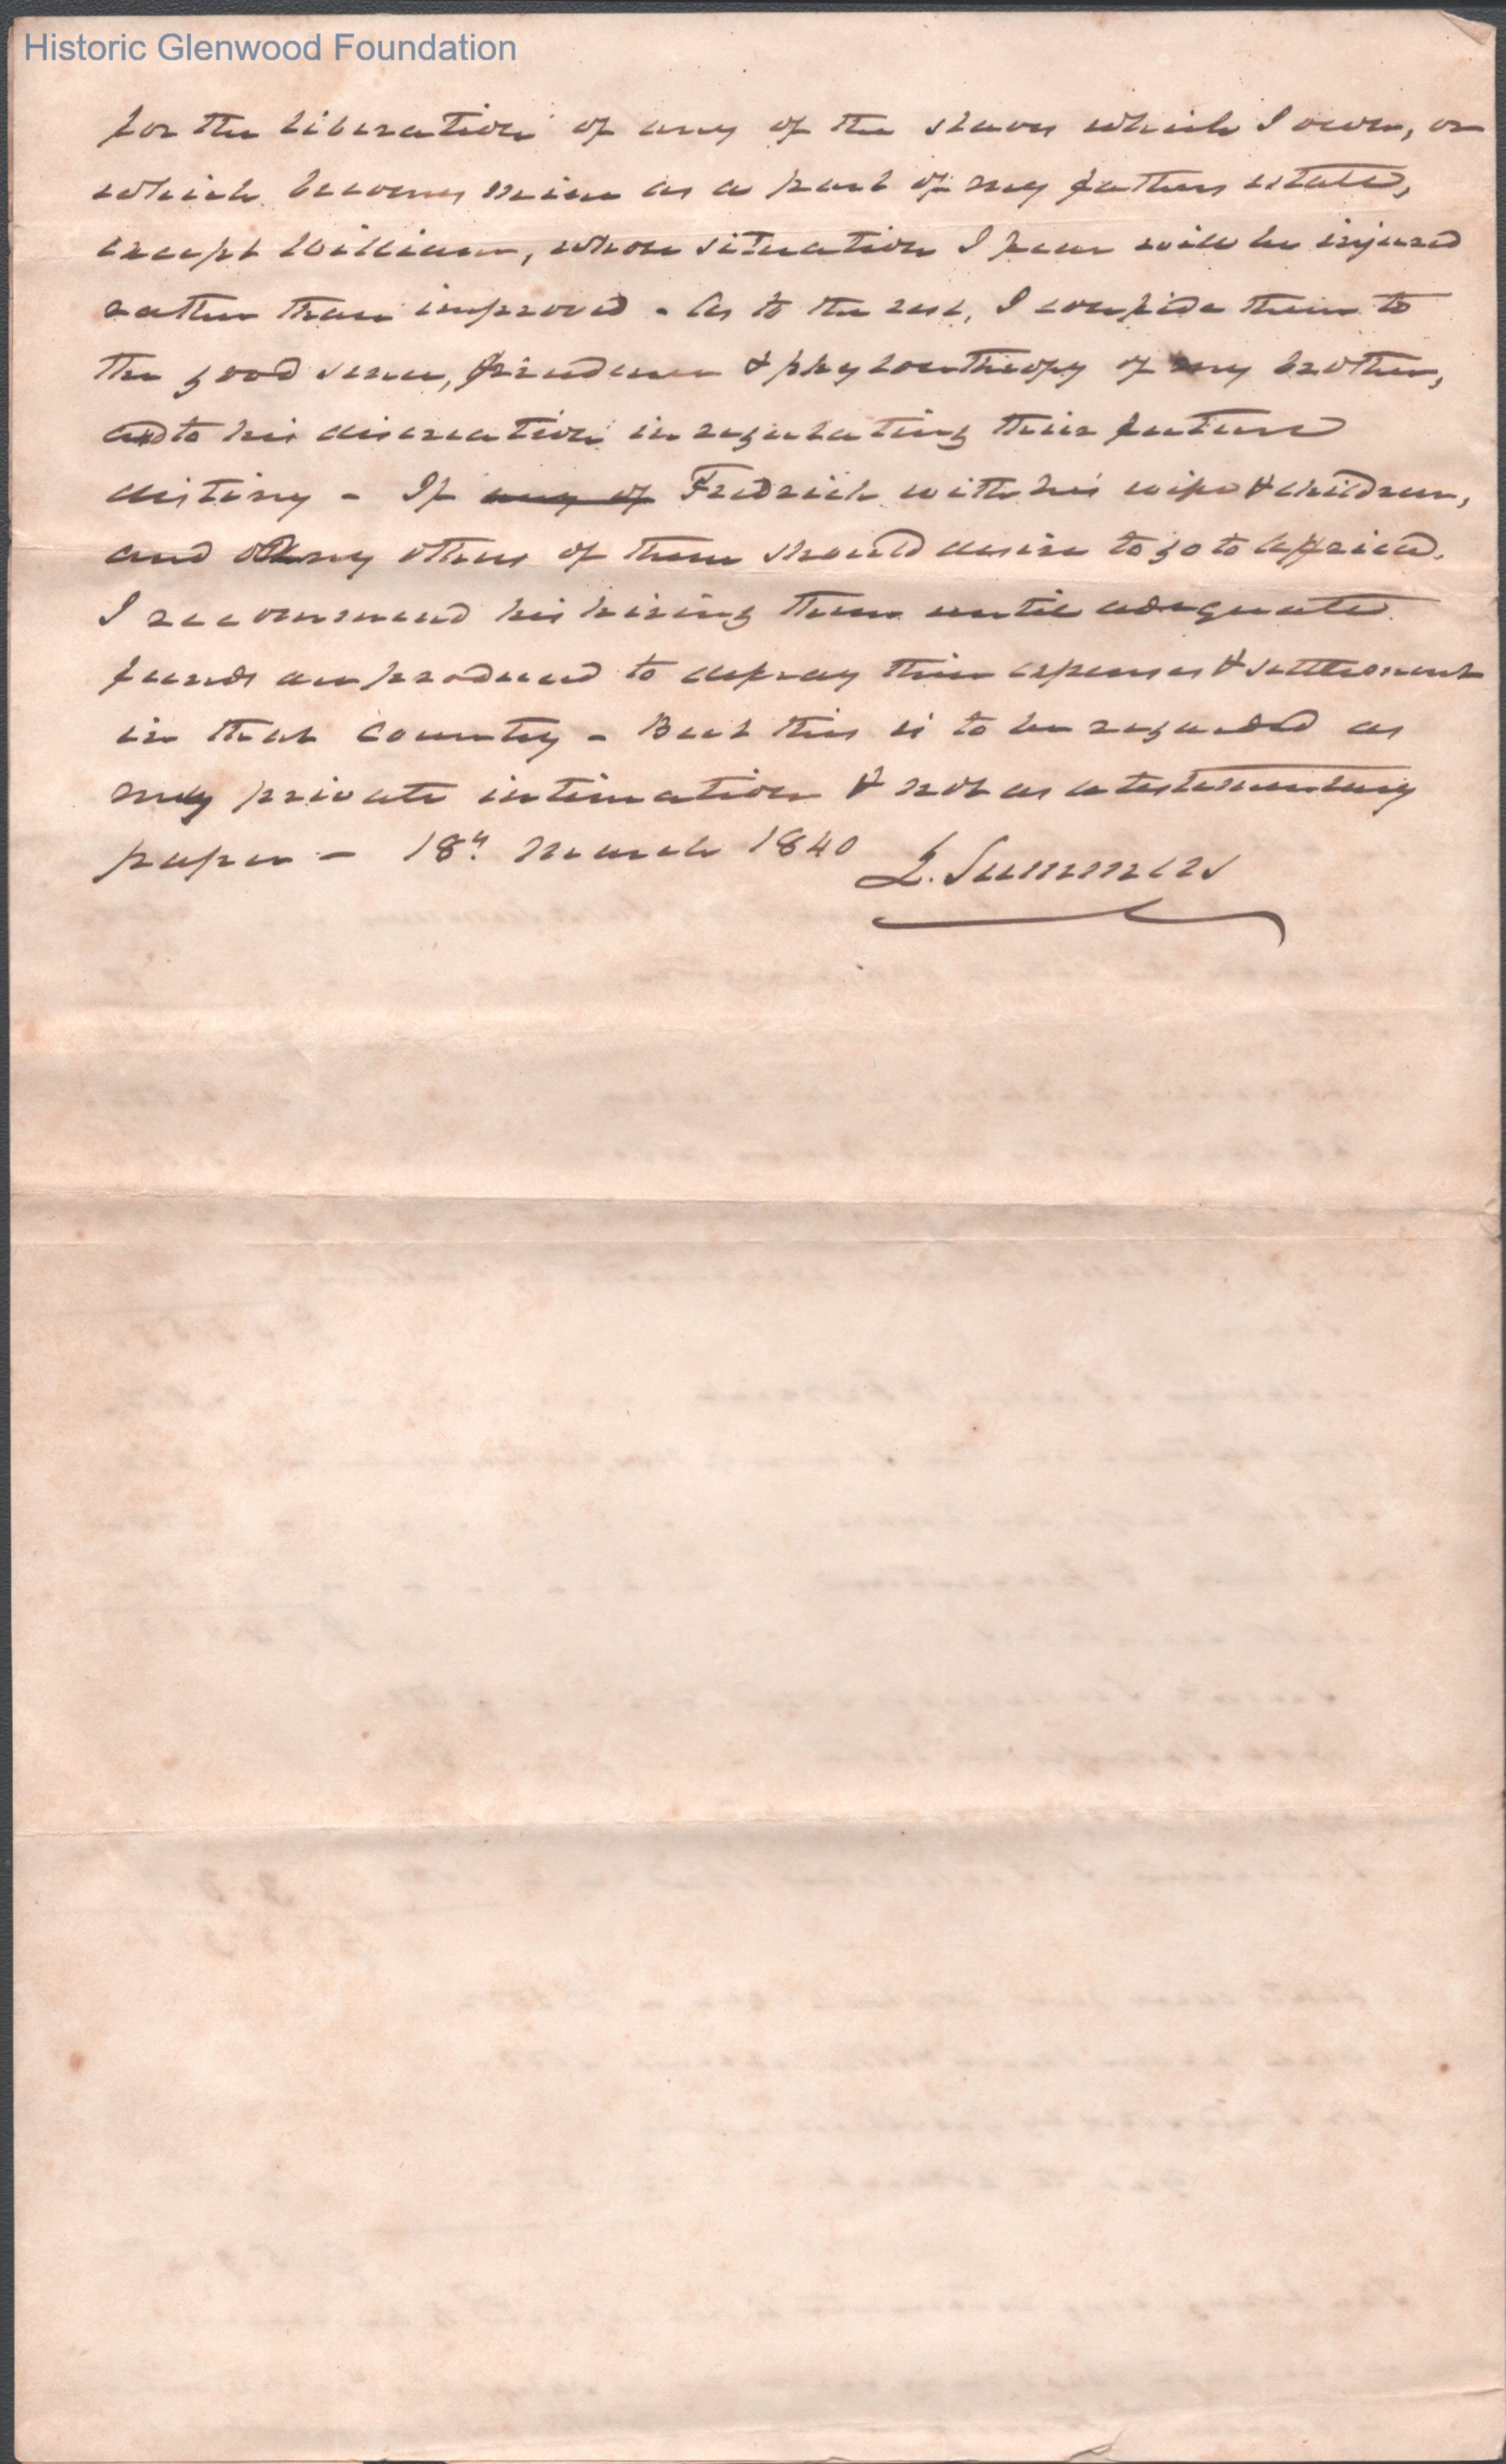 Historic Glenwood Foundation
for the liberation of any of the slaves which I own, or
which becomes mine as a part of my fathers estate,
except William, whose situation I fear will be injured
rather than improved - As to the rest, I confide them to
the good sense, prudence & phylanthropy of my brother,
and to his discreation in regulating their future
distiny - If any of Fredrick with his wife & children,
and any others of them should desire to go to Affrica,
I recommend his hiring them until adequate
funds are produced to defray their expenses & settlement
in that country - But this is to be regarded as
my private intimation & not as a testamentary
paper - 18th March 1840
L. Summers